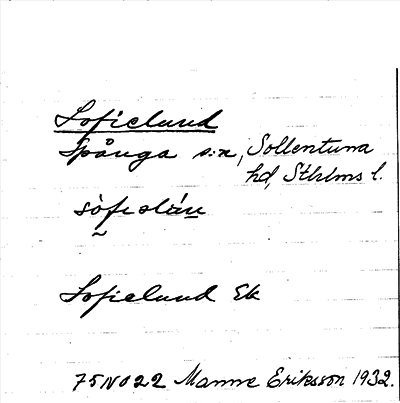 Sofielund
Spånga s:n, Sollentuna
hd, Sthlms l.
sòfielún
Sofielund Ek
75NO22 Manne Eriksson 1932.